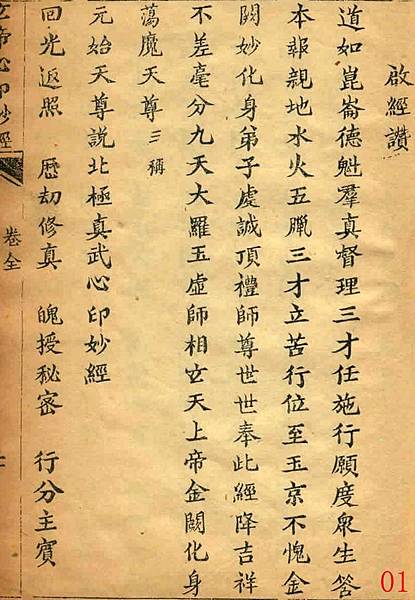 啟經讚
道如崑崙德魁羣真督理三才任施行願度眾生答
本報親地水火五臘三才立苦行位至玉京不愧金
闕妙化身弟子虔誠頂禮師尊世世奉此經降吉祥
不差毫分九天大羅玉虛師相玄天上帝金闕化身
蕩魔天尊三稱
元始天尊說北極真武心印妙經
回光返照 歷劫修真 魄授秘密 行分主賓
玄帝心印妙經
卷全
01